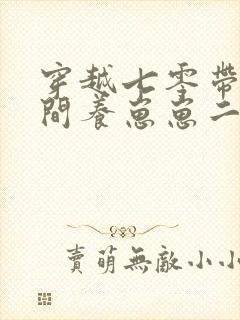 穿越七零帶
間養崽崽二
賣萌無敵小小